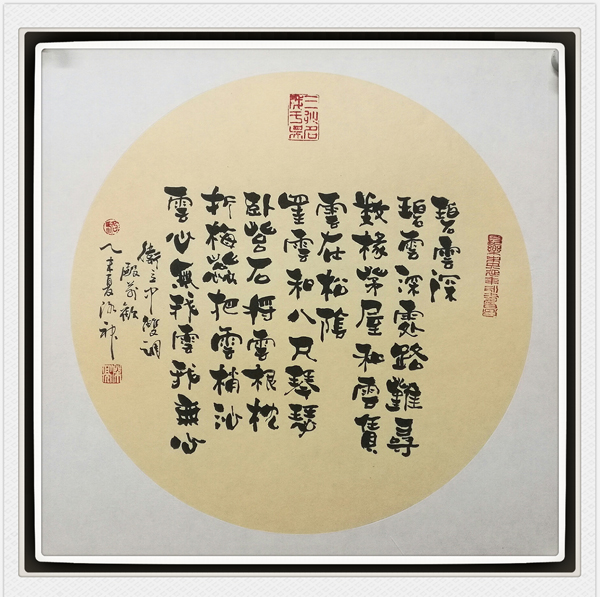 碧雲深
碧雲深處路難尋
數椽茅屋和雲賃
雲在松隂
罣雲和八尺琴瑟
卧苔石將雲根枕
折梅蕊把雲梢沁
雲心無我雲我無心
衛立中雙調
殿前歡
乙未夏